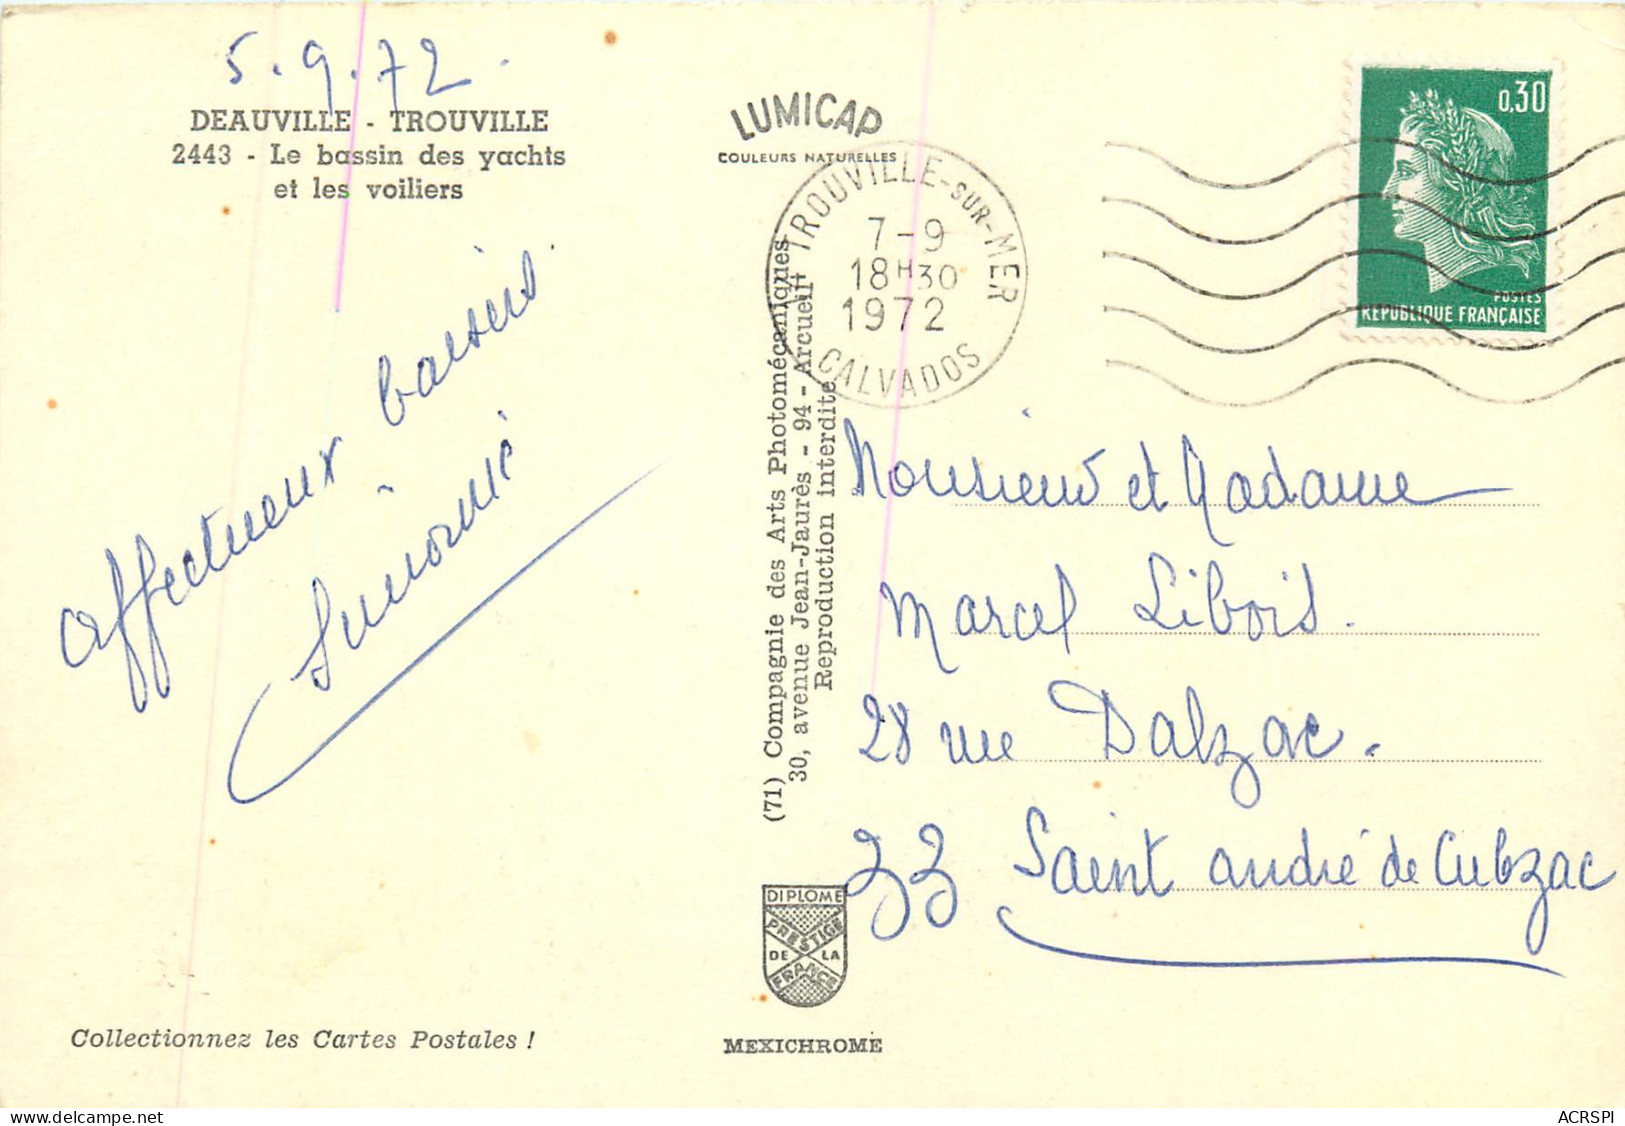 5.9.72.
DEAUVILLE - TROUVILLE
2443 - Le bassin des yachts
et les voiliers
affectueux baisers
Simone
Collectionnez les Cartes Postales !
LUMICAP
COULEURS NATURELLES
TROUVILLE-SUR-MER
7-9
18H30
1972
CALVADOS
0,30
POSTES
RÉPUBLIQUE FRANÇAISE
(71) Compagnie des Arts Photomécaniques
30, avenue Jean-Jaurès - 94 - Arcueil
Reproduction interdite
Monsieur et Madame
Marcel Libois.
28 rue Dalzac.
33 Saint andré de Cubzac
DIPLOME
PRESTIGE
DE LA
FRANCE
MEXICHROME
delcampe.net
ACRSPI